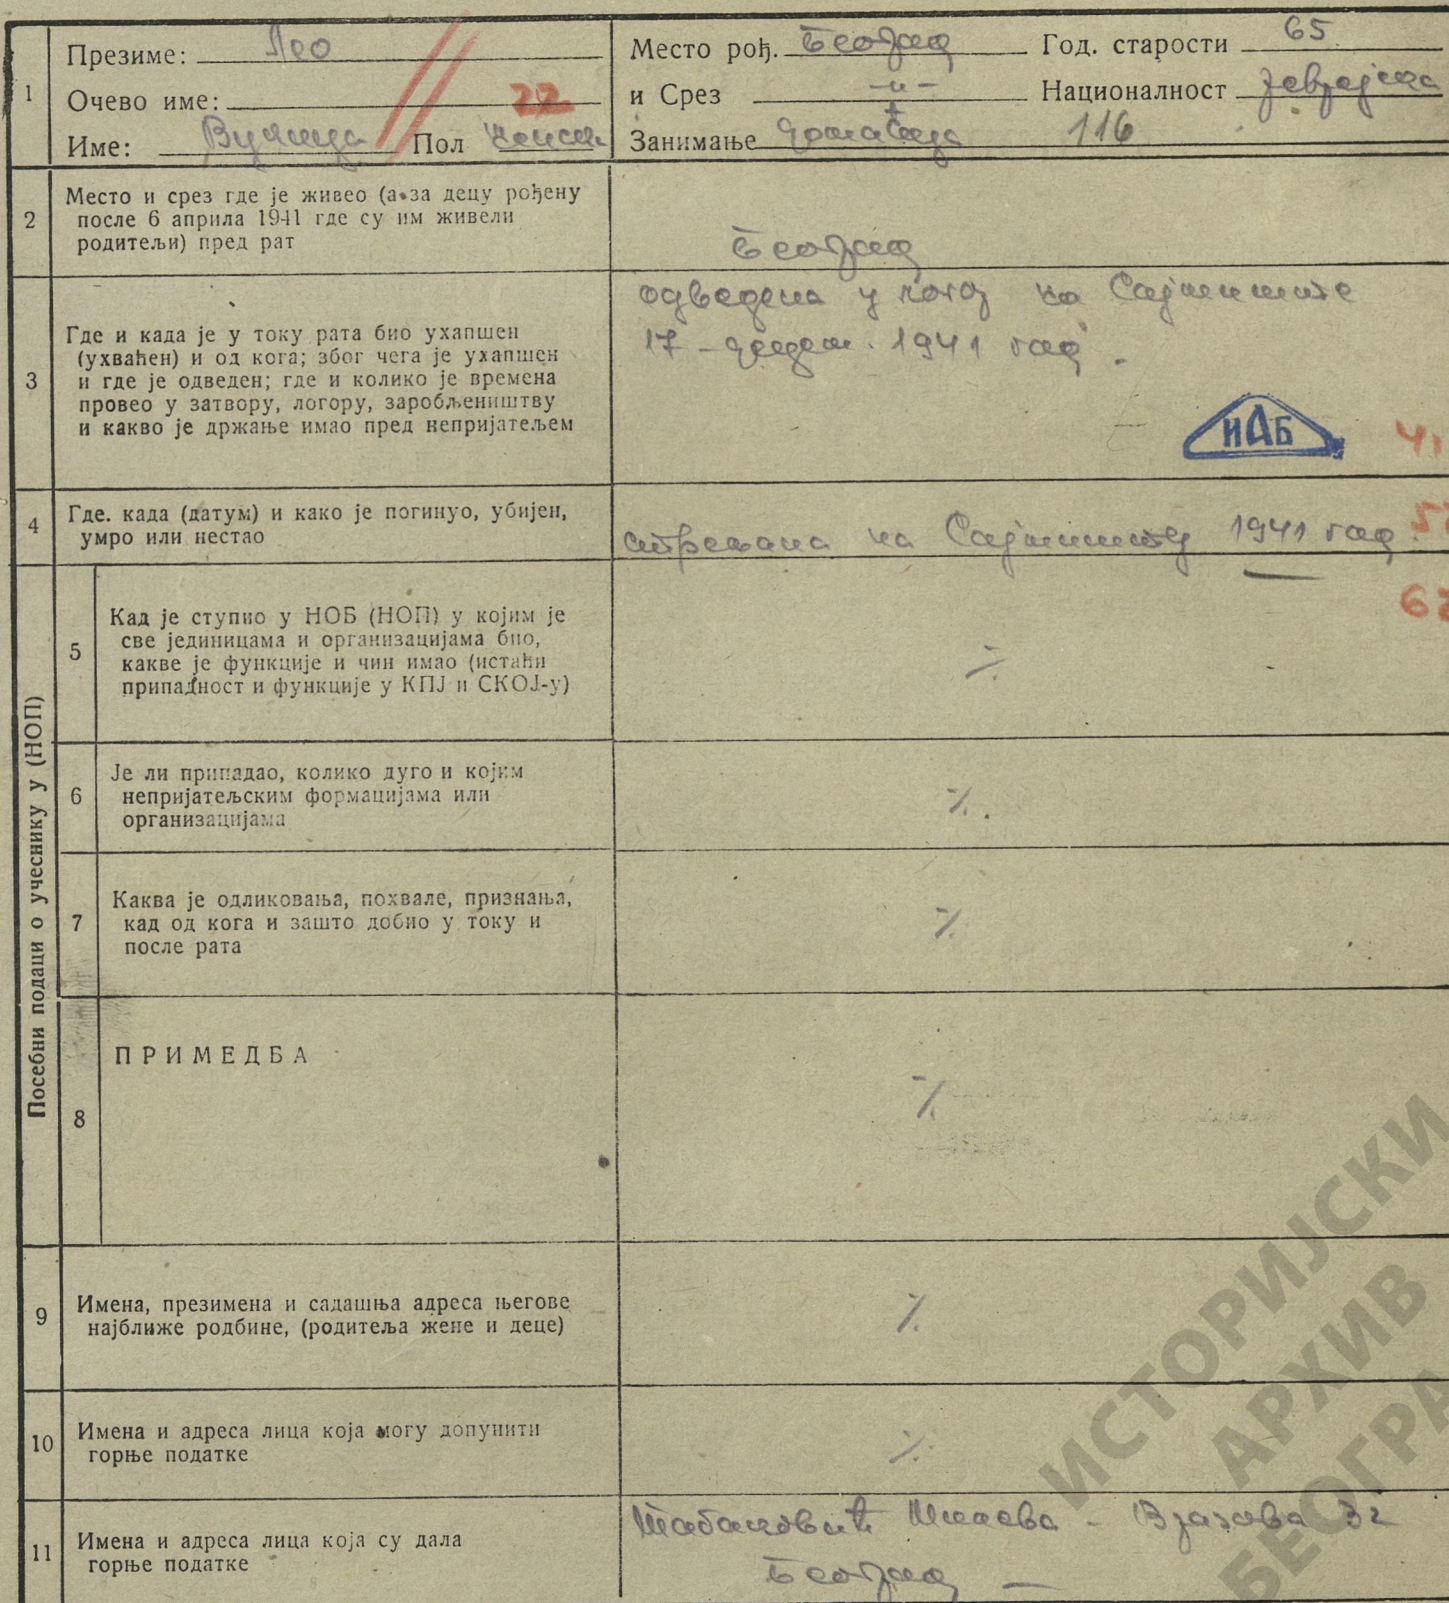 1
Презиме: Лео
Очево име: 22
Име: Вукица Пол женски
Место рођ. Београд Год. старости 65
и Срез -"- Националност Јеврејка
Занимање домаћица 116
2
Место и срез где је живео (а за децу рођену
после 6 априла 1941 где су им живели
родитељи) пред рат
Београд
3
Где и када је у току рата био ухапшен
(ухваћен) и од кога; због чега је ухапшен
и где је одведен; где и колико је времена
провео у затвору, логору, заробљеништву
и какво је држање имао пред непријатељем
одведена у логор на Сајмиште
17 - децем. 1941 год.
ИАБ
4
Где. када (датум) и како је погинуо, убијен,
умро или нестао
стрељана на Сајмишту 1941 год.
Посебни подаци о учеснику у (НОП)
5
Кад је ступио у НОБ (НОП) у којим је
све јединицама и организацијама био,
какве је функције и чин имао (истаћи
припадност и функције у КПЈ и СКОЈ-у)
-/.
6
Је ли припадао, колико дуго и којим
непријатељским формацијама или
организацијама
-/.
7
Каква је одликовања, похвале, признања,
кад од кога и зашто добио у току и
после рата
-/.
8
ПРИМЕДБА
-/.
9
Имена, презимена и садашња адреса његове
најближе родбине, (родитеља жене и деце)
-/.
10
Имена и адреса лица која могу допунити
горње податке
-/.
11
Имена и адреса лица која су дала
горње податке
Београд —
ИСТОРИЈСКИ
АРХИВ
БЕОГРА